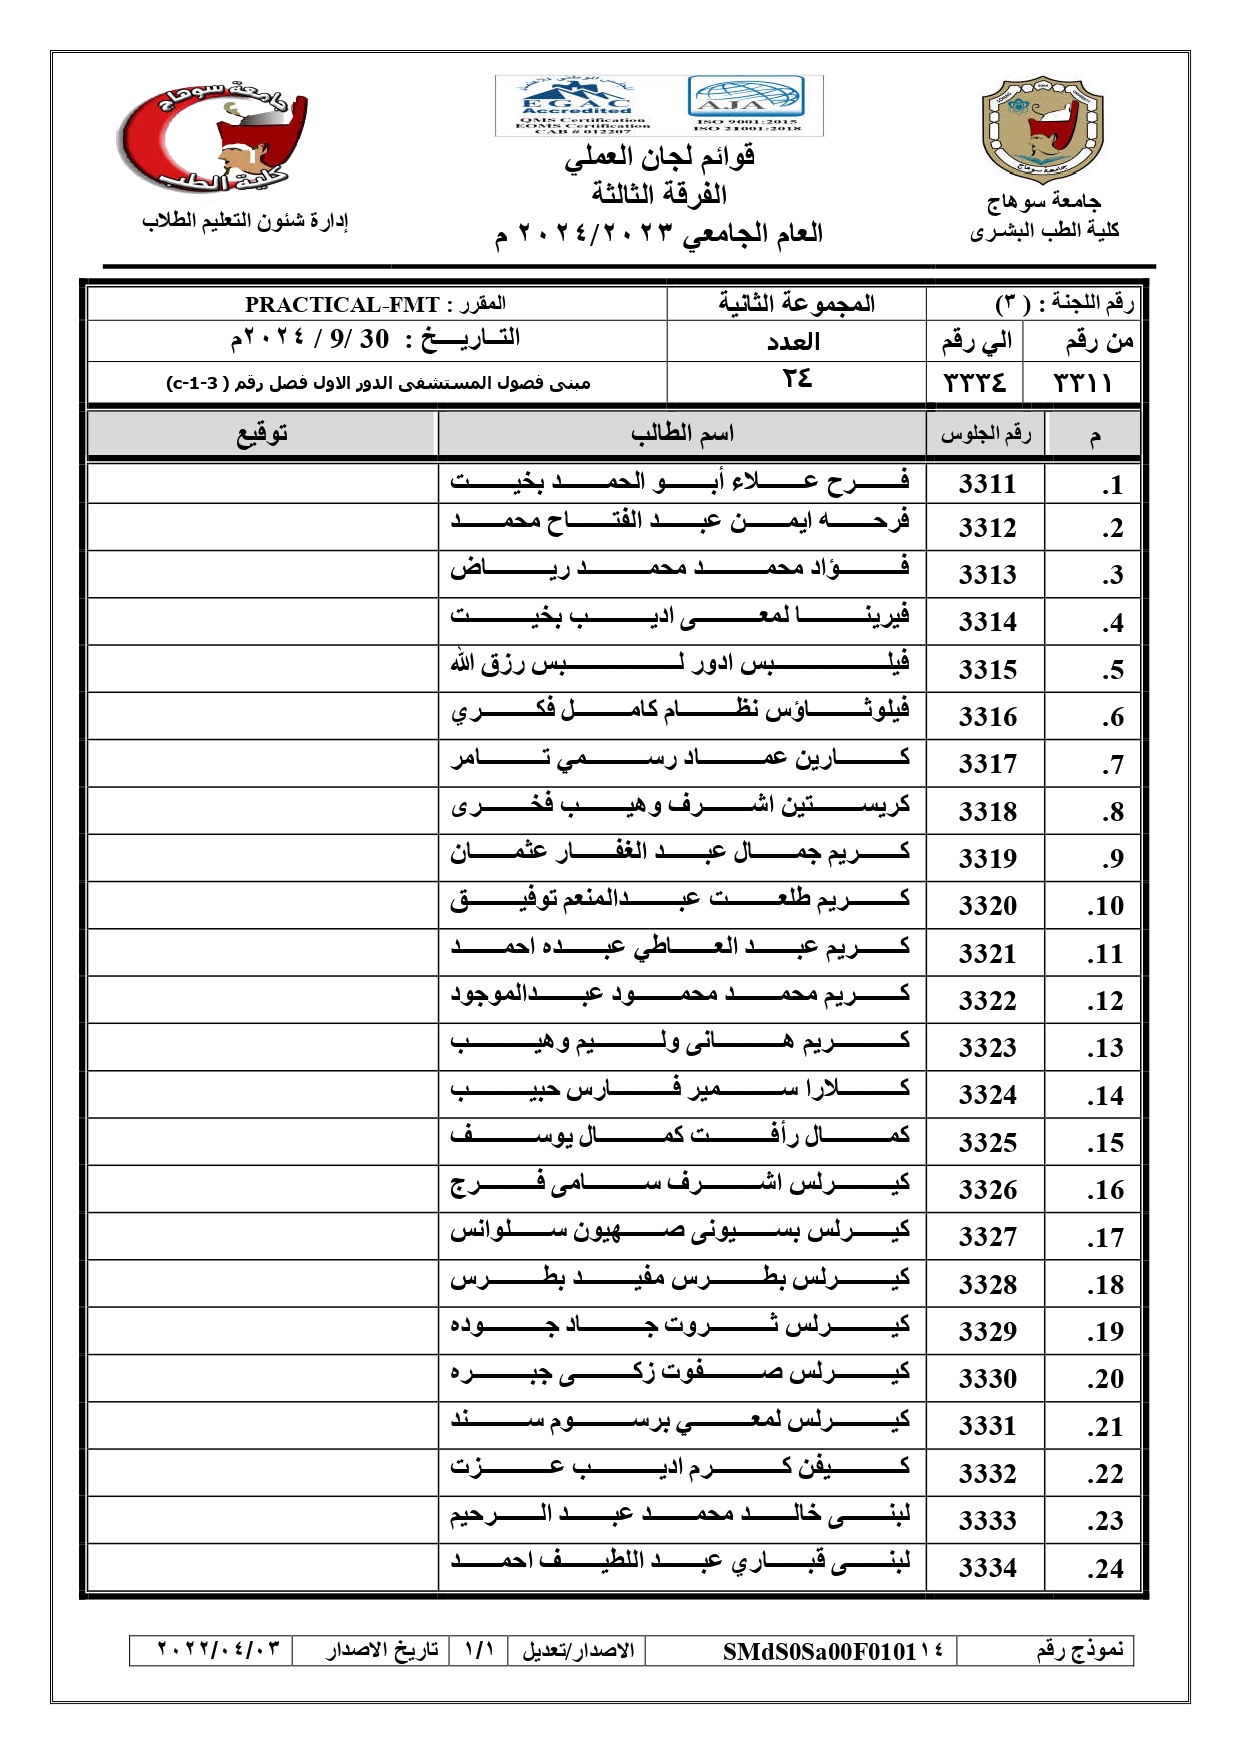 جامعة سوهاج
كلية الطب
المجلس الوطني للاعتماد
EGAC
Accredited
QMS Certification
EOMS Certification
CAB # 012207
AJA
ISO 9001:2015
ISO 21001:2018
جامعة سوهاج
جامعة سوهاج
كلية الطب البشرى
قوائم لجان العملي
الفرقة الثالثة
العام الجامعي ٢٠٢٤/٢٠٢٣ م
إدارة شئون التعليم الطلاب
رقم اللجنة : ( ٣) المجموعة الثانية المقرر : PRACTICAL-FMT
من رقم الي رقم العدد التــاريــــخ : 30 /9 / ٢٠٢٤م
٣٣١١ ٣٣٣٤ ٢٤ مبنى فصول المستشفى الدور الاول فصل رقم ( c-1-3)
م رقم الجلوس اسم الطالب توقيع
1. 3311 فرح علاء أبو الحمد بخيت
2. 3312 فرحه ايمن عبد الفتاح محمد
3. 3313 فؤاد محمد محمد رياض
4. 3314 فيرينا لمعى اديب بخيت
5. 3315 فيلبس ادور لبس رزق الله
6. 3316 فيلوثاؤس نظام كامل فكري
7. 3317 كارين عماد رسمي تامر
8. 3318 كريستين اشرف وهيب فخرى
9. 3319 كريم جمال عبد الغفار عثمان
10. 3320 كريم طلعت عبدالمنعم توفيق
11. 3321 كريم عبد العاطي عبده احمد
12. 3322 كريم محمد محمود عبدالموجود
13. 3323 كريم هانى وليم وهيب
14. 3324 كلارا سمير فارس حبيب
15. 3325 كمال رأفت كمال يوسف
16. 3326 كيرلس اشرف سامى فرج
17. 3327 كيرلس بسيونى صهيون سلوانس
18. 3328 كيرلس بطرس مفيد بطرس
19. 3329 كيرلس ثروت جاد جوده
20. 3330 كيرلس صفوت زكى جبره
21. 3331 كيرلس لمعي برسوم سند
22. 3332 كيفن كرم اديب عزت
23. 3333 لبنى خالد محمد عبد الرحيم
24. 3334 لبنى قباري عبد اللطيف احمد
نموذج رقم SMdS0Sa00F0101١٤ الاصدار/تعديل ١/١ تاريخ الاصدار ٢٠٢٢/٠٤/٠٣